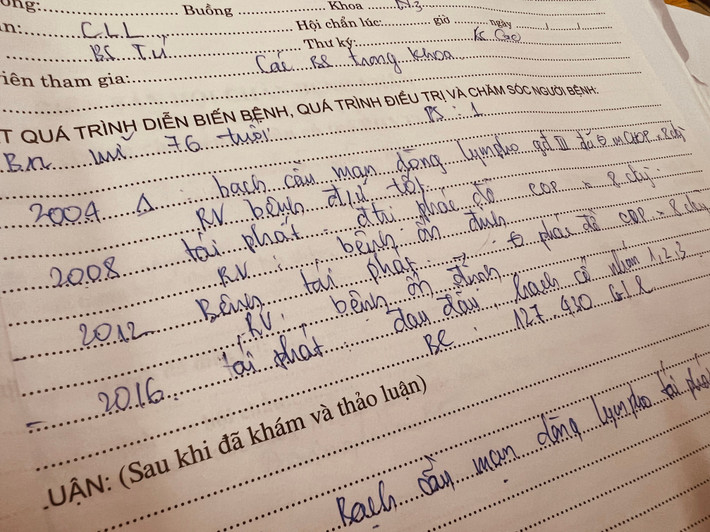 ông: Buồng Khoa N3
án: CLL Hội chẩn lúc: giờ ngày / /
BS Tú Thư ký:
iên tham gia: Các BS trong khoa
T QUÁ TRÌNH DIỄN BIẾN BỆNH, QUÁ TRÌNH ĐIỀU TRỊ VÀ CHĂM SÓC NGƯỜI BỆNH:
B.n nữ 76 tuổi PS : 1
2004 Δ : bạch cầu mạn dòng lympho gđ III đã mCHOP
RV bệnh đ.ứ tốt
2008 tái phát đ.trị phác đồ COP = 8 đợt
RV : bệnh ổn định
2012 Bệnh tái phát phác đồ COP = 8
RV: bệnh ổn định
2016 tái phát đau đầu, hạch cổ nhóm 1,2,3
BC : 127 420 G/l
LUẬN: (Sau khi đã khám và thảo luận)
Bạch cầu mạn dòng lympho tái phát